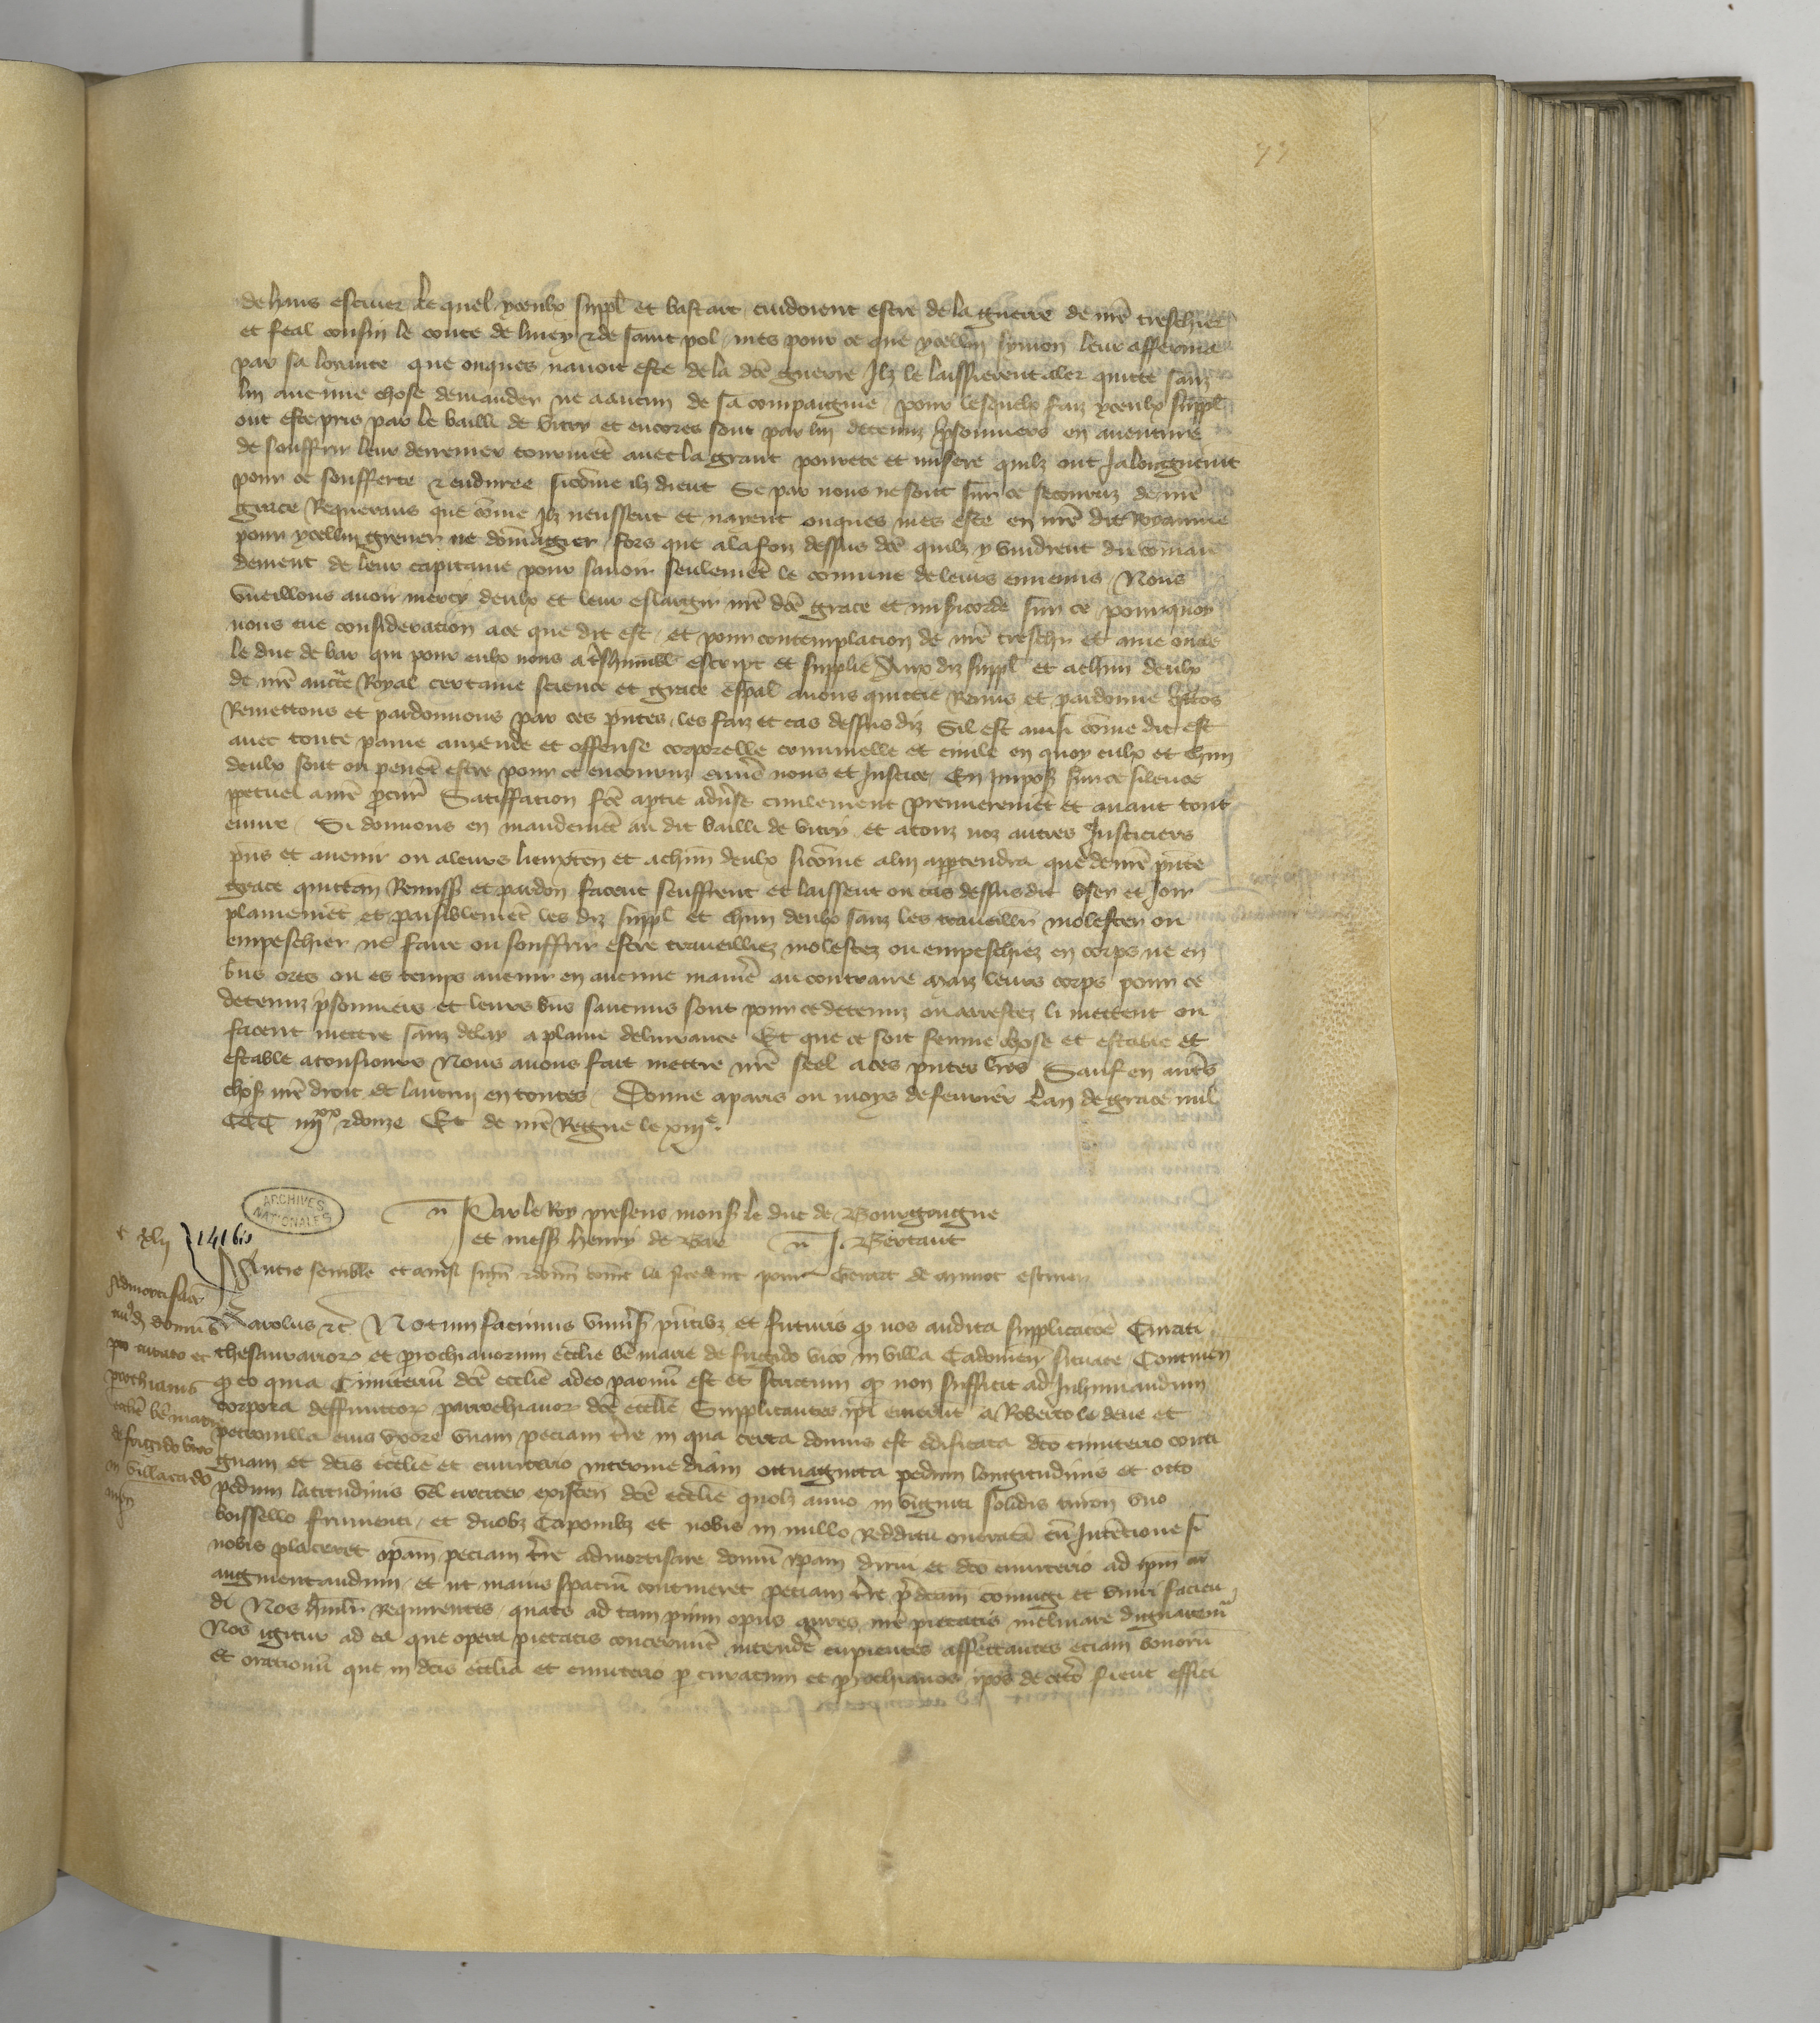 77
de hans escuier le quel yceulx suppl et bastart cuidoient estre de la guerre de nrē treschier
et feal cousin le conte de liney & de saint pol / mes pour ce que ycellui symon leur afferma
par sa loyaute que onques nauoit este de la dcē guerre Ilz le laissierent aler quitte sanz
lui aucune chose demander ne a aucun de sa compaignie / pour lesquelx faiz yceulx suppl
ont este pris par le bailli de vitry et encores sont par lui detenuz psonniers en auenture
de souffrir leur derrenier tourmēt auec la grant pourete et misere quilz ont Ja longuemt
pour ce soufferte & enduree sicōme ilz dient Se par nous ne sont sur ce secouruz de nrē
grace Requerans que cōme Ilz neussent et nayent onques mes este en nrē dit Royaume
pour ycellui greuer ne dōmagier / fors que a la foiz dessus dcē quilz y vindrent du cōman
dement de leur capitaine pour sauoir seulemēt le conuine de leurs ennemis / Nous
vueillons auoir mercy deulx et leur eslargir nrē dcē grace et misicorde sur ce pourquoy
nous eue consideracion a ce que dit est / et pour contemplacion de nrē treschr et ame oncle
le duc de bar qui pour eulx nous a tshumblt escript et supplie Aux diz suppl et a chun deulx
de nrē aucte Royal certaine science et grace espal auons quictie Remis et pardonne
Remettons et pardonnons par ces pntes / les faiz et cas dessus diz Sil est ainsi cōme dit est
auec toute paine amende et offense corporelle criminelle et ciuile en quoy eulx et chun
deulx sont ou peuēt estre pour ce encouruz enuēs nous et Justice / En imposs sur ce silence
ppetuel a nrē procur Satiffation fcē a ptie aduse ciuilement premieremēt et auant tout
euure / Si donnons en mandemēt au dit bailli de vitry et a touz noz autres Justiciers
pns et auenir ou a leurs lieuxten et a chun deulx sicōme a lui apptendra que de nrē pnte
grace quittan Remiss et pardon facent seuffrent et laissent ou cas dessus dit vser et Joir
plainemēt et paisiblemēt les diz suppl et chun deulx sanz les traueillir molester ou
empeschier ne faire ou souffrir estre traueilliez molestez ou empeschiez en corps ne en
bns ores ou es temps auenir en aucune maniē au contraire maiz leurs corps pour ce
detenuz psonniers et leurs bns saucuns sont pour ce detenuz ou arrestez li mettent ou
facent mettre sanz delay a plaine deliurance Et que ce soit ferme chose et estable et
estable a tousiours Nous auons fait mettre nrē seel a ces pntes lrēs Sauf en autēs
chos nrē droit et lautrui en toutes / Donne a paris ou moys de feurier Lan de grace mil
CCC iiijxx & douze Et de nrē Regne le xiije.
ARCHIVES NATIONALES
Par le Roy presens monsr le duc de Bourgongne
et messr henry de Bar J. Bertaut
C xlij
141 bis
Autre semble et ainsi sign & donn cōme la pcedent pour Gerart de escuier
Admortisacō
domus
pro curato et
prochianis
ecclē bē marie
de frigido vico
in villa cado
men
Karolus &c Notum facimus vniuss pntibz et futuris q nos audita supplicacōe Curati
thesaurarior et prochianorum ecclie bē marie de frigido vico in villa Cadomen situate Continen
q eo quia Cimiteriū dcē ecclie adeo paruū est et strictum q non sufficit ad Inhumandum
corpora deffunctor parrochianor dcē ecclie Supplicantes ipi emerūt a Roberto le deue et
petronilla eius vxore vnam peciam trē in qua certa domus est edificata dco cimiterio conti
guam et dcis ecclie et cimiterio intermediam octuaginta pedum longitudinis et octo
pedum latitudinis vel circiter existen dcē ecclie quolz anno in viginti solidis turon vno
boissello frumenti / et duobz Caponibz et nobis in nullo Redditu oneratā cū Intencione si
nobis placeret ipam peciam trē admortisare domū ipam dirui et dco cimiterio ad ipm
augmentandum / et ut maius spaciū contineret peciam trē pdcam coniungi et vniri facien
di Nos humilr requirentes / quate ad tam pium opus aures nrē pietatis inclinare dignaremr
Nos igitur ad ea que opera pietatis concernūt intendē cupientes affectantes eciam bonorū
et orationū que in dcis ecclia et cimiterio p curatum et prochianos ipos de ceto fient effici